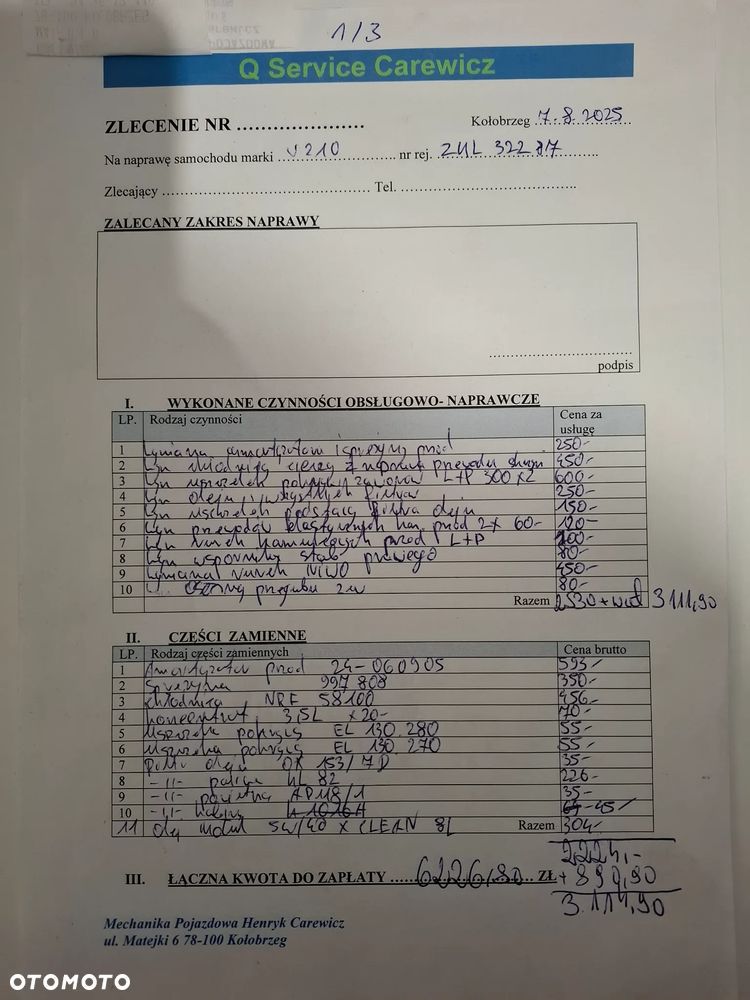 1/3
Q Service Carewicz
ZLECENIE NR .....................
Kołobrzeg 7.8.2025
Na naprawę samochodu marki V210 nr rej. ZKL 32287
Zlecający ............................................... Tel. ........................................
ZALECANY ZAKRES NAPRAWY
podpis
I. WYKONANE CZYNNOŚCI OBSŁUGOWO- NAPRAWCZE
LP. Rodzaj czynności Cena za usługę
1 wymiana amortyzatorów i sprężyny przód 250-
2 wym chłodnicy cieczy z naprawą przewodu 450-
3 wym uszczelek pokrywy zaworów L+P 300x2 600-
4 wym oleju i wszystkich filtrów 250-
5 wym uszczelek podstawy filtra oleju 150-
6 wym przewodów elastycznych ham. przód 2x 60- 120-
7 wym przód L+P 100-
8 wym wspornika stab prawego 80-
9 wymiana NIWO 450-
10 osłony przegubu zew 80-
Razem 2530+vat 3111,90
II. CZĘŚCI ZAMIENNE
LP. Rodzaj części zamiennych Cena brutto
1 Amortyzator przód 24-060905 593-
2 Sprężyna 997808 350-
3 chłodnica NRF 58100 456-
4 koncentrat 3,5L x20- 70-
5 Uszczelka pokrywy EL 130.280 55-
6 Uszczelka pokrywy EL 130.270 55-
7 Filtr oleju OX 153/7D 35-
8 -||- paliwa KL 82 226-
9 -||- powietrza AP118/1 35-
10 -||- kabiny 45-
11 olej motul 5W/40 X CLEAN 8L Razem 304-
2224,-
III. ŁĄCZNA KWOTA DO ZAPŁATY 6226,80 ZŁ + 890,90
3.114,90
Mechanika Pojazdowa Henryk Carewicz
ul. Matejki 6 78-100 Kołobrzeg
OTOMOTO